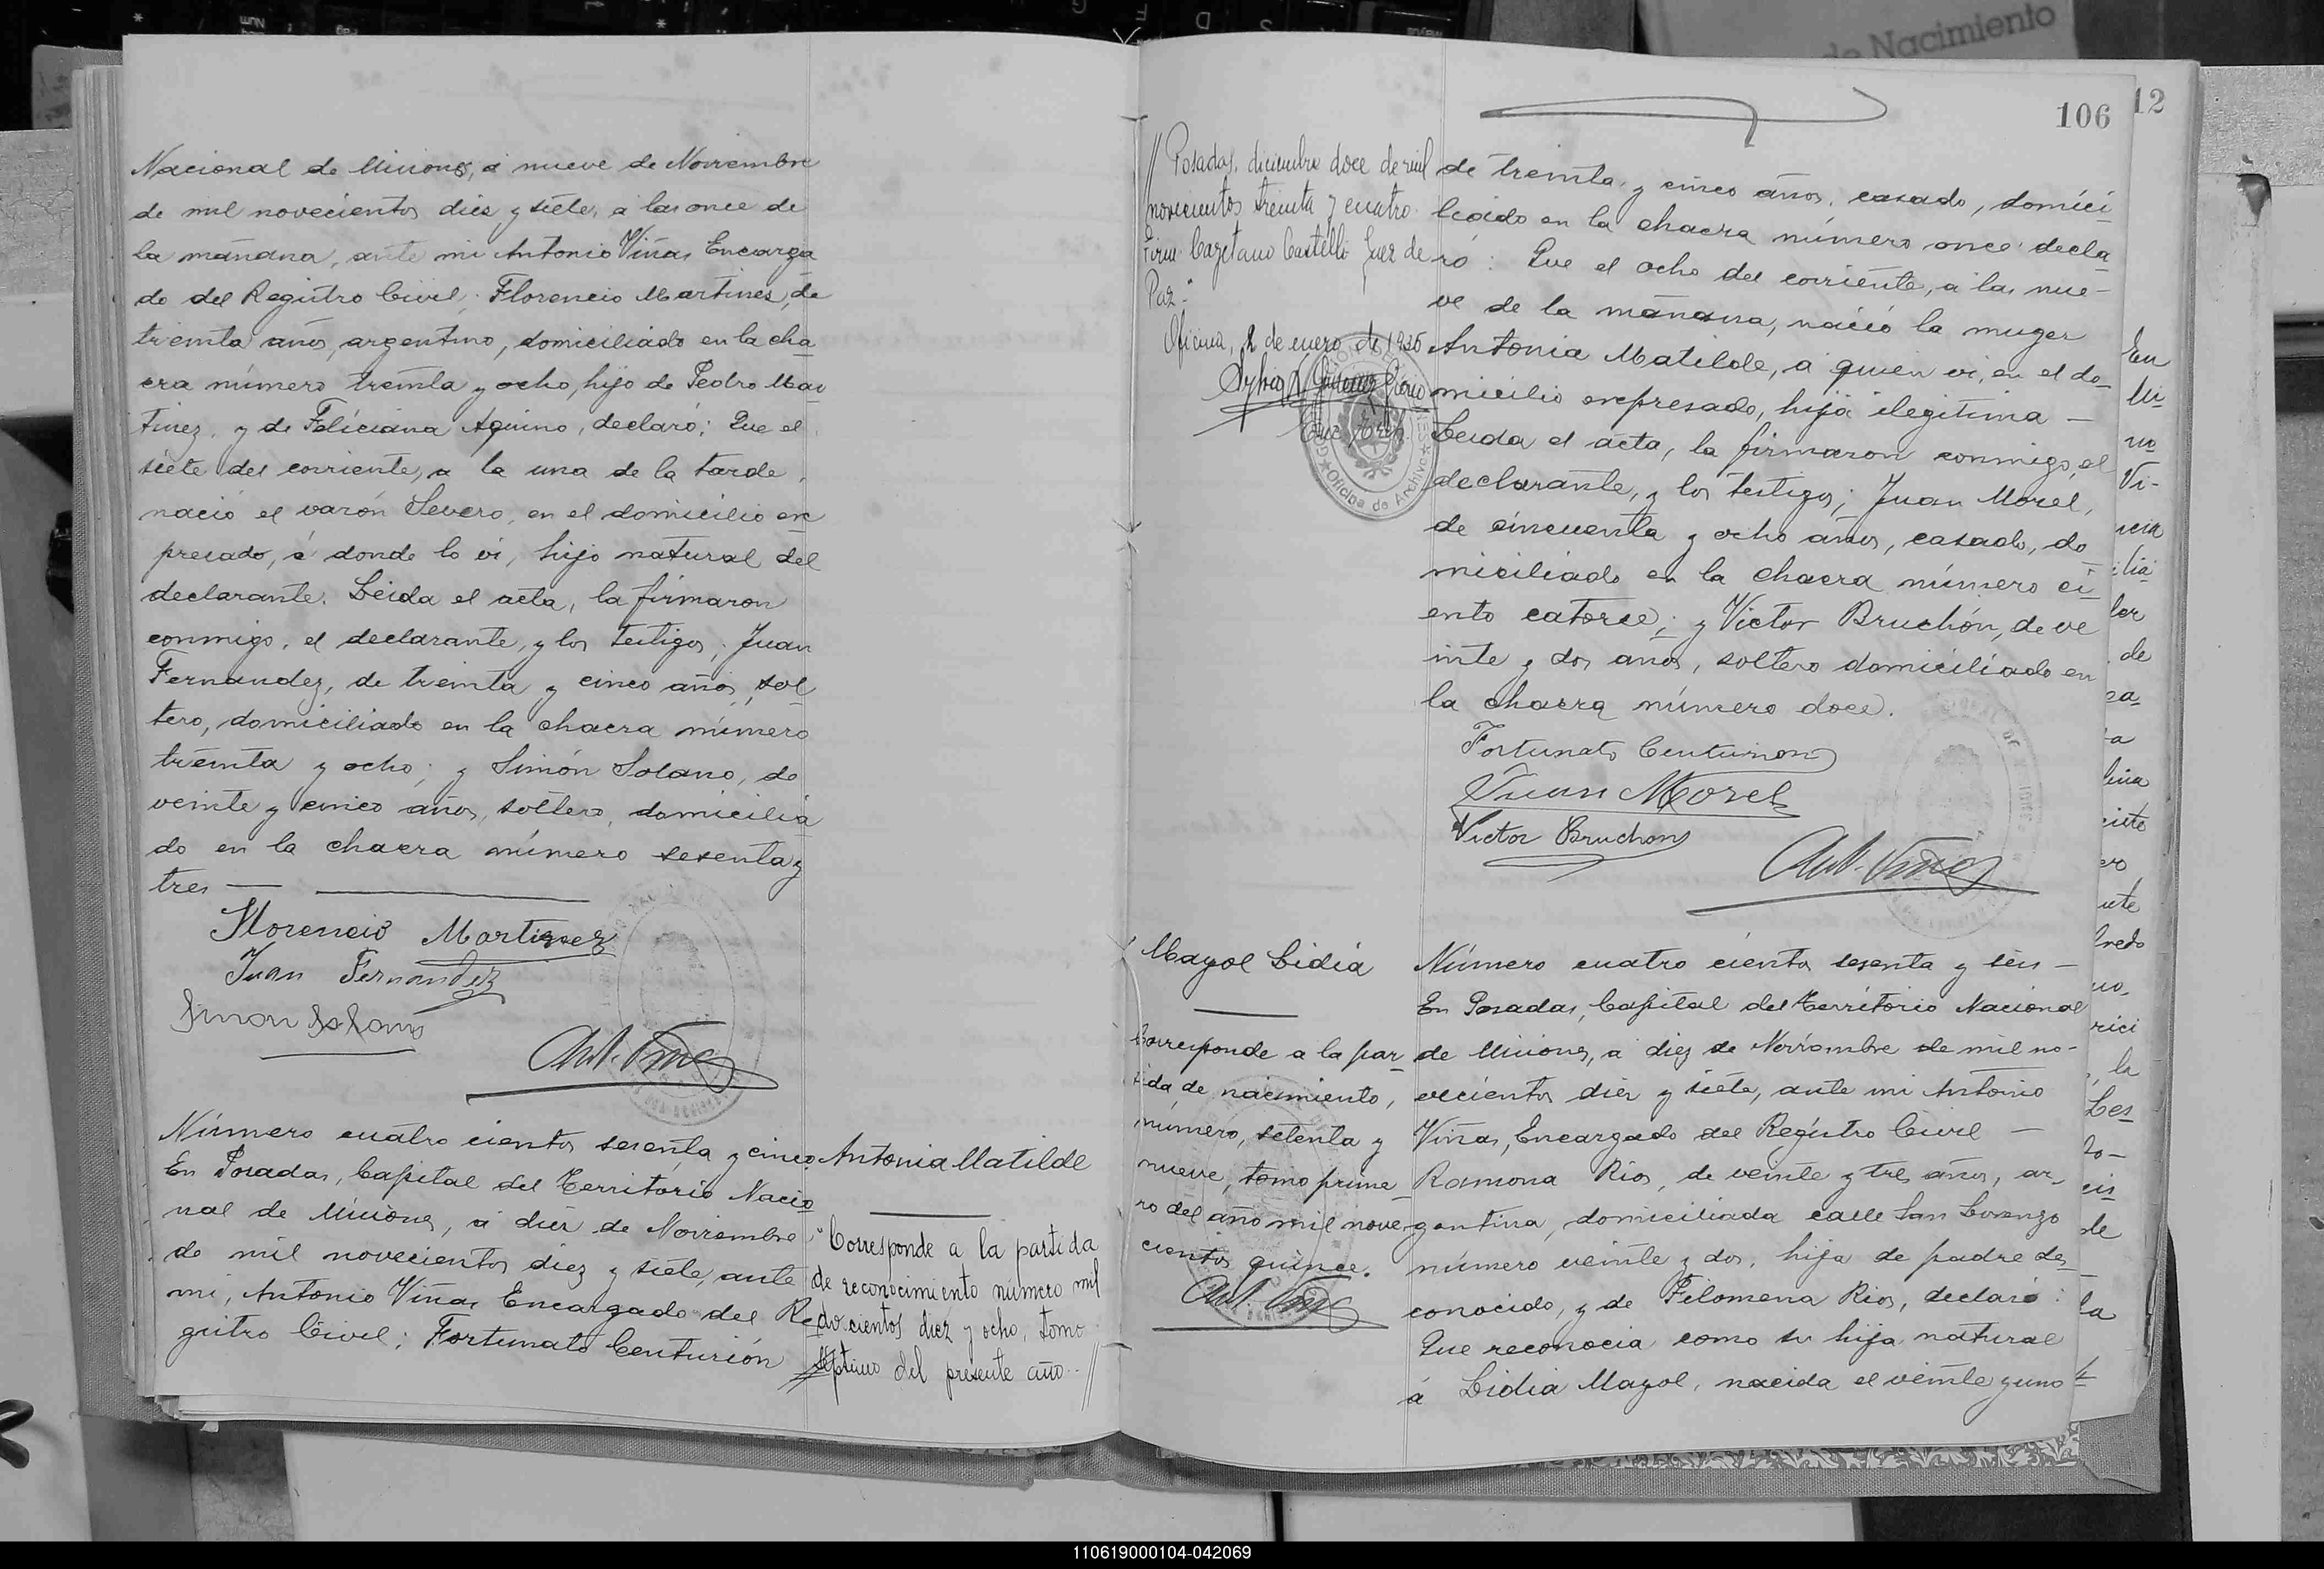 Nacional de Misiones, á nueve de Noviembre
de mil novecientos diez y siete, a las once de
la mañana, ante mi Antonio Viñas Encarga
do del Registro Civil; Florencio Martines, de
treinta años, argentino, domiciliado en la cha
cra número treinta y ocho, hijo de Pedro Mar
tinez, y de Feliciana Aquino, declaró; Que el
siete del corriente, a la una de la tarde,
nació el varón Severo, en el domicilio ex
presado, á donde lo vi, hijo natural del
declarante. Leida el acta, la firmaron
conmigo, el declarante, y los testigos; Juan
Fernandez, de treinta y cinco años, sol
tero, domiciliado en la chacra número
treinta y ocho; y Simón Solano, de
veinte y cinco años, soltero, domicilia
do en la chacra número sesenta y
tres
Florencio Martinez
Juan Fernandez
Simon Solano
Ant. Viñas
Número cuatro cientos sesenta y cinco
En Posadas, Capital del Territorio Nacio
nal de Misiones, a diez de Noviembre
de mil novecientos diez y siete, ante
mi, Antonio Viñas Encargado del Re
gistro Civil; Fortunato Centurión
Antonia Matilde
"Corresponde a la partida
de reconocimiento número mil
docientos diez y ocho, tomo
séptimo del presente año.- //
106
12
// Posadas, diciembre doce de mil
novecientos treinta y cuatro.
Firm. Cayetano Castelli Juez de
Paz.-"
Oficina, 2 de enero de 1935
Oficina de Archivo
de treinta y cinco años, casado, domici
liado en la chacra número once decla
ró: Que el ocho del corriente, a las nue-
ve de la mañana, nació la muger
Antonia Matilde, a quien vi, en el do-
micilio expresado, hija ilegitima —
Leida el acta, la firmaron conmigo, el
declarante, y los testigos; Juan Morel,
de cincuenta y ocho años, casado, do
miciliado en la chacra número ci
ento catorce; y Victor Bruchón, de ve
inte y dos anos, soltero domiciliado en
la chacra número doce.
Fortunato Centurion
Juan Morel
Victor Bruchon
Ant. Viñas
Mayol Lidia
Corresponde a la par
tida de nacimiento,
número, setenta y
nueve, tomo prime
ro del año mil nove
cientos quince.
Ant. Viñas
Número cuatro cientos sesenta y seis —
En Posadas, Capital del Territorio Nacional
de Misiones, a diez de Noviembre de mil no-
vecientos diez y siete, ante mi Antonio
Viñas, Encargado del Registro Civil —
Ramona Rios, de veinte y tres años, ar
gentina, domiciliada calle San Lorenzo
número veinte y dos, hija de padre des
conocido, y de Filomena Rios, declaró:
Que reconocia como su hija natural
á Lidia Mayol, nacida el veinte y uno
de Nacimiento
110619000104-042069